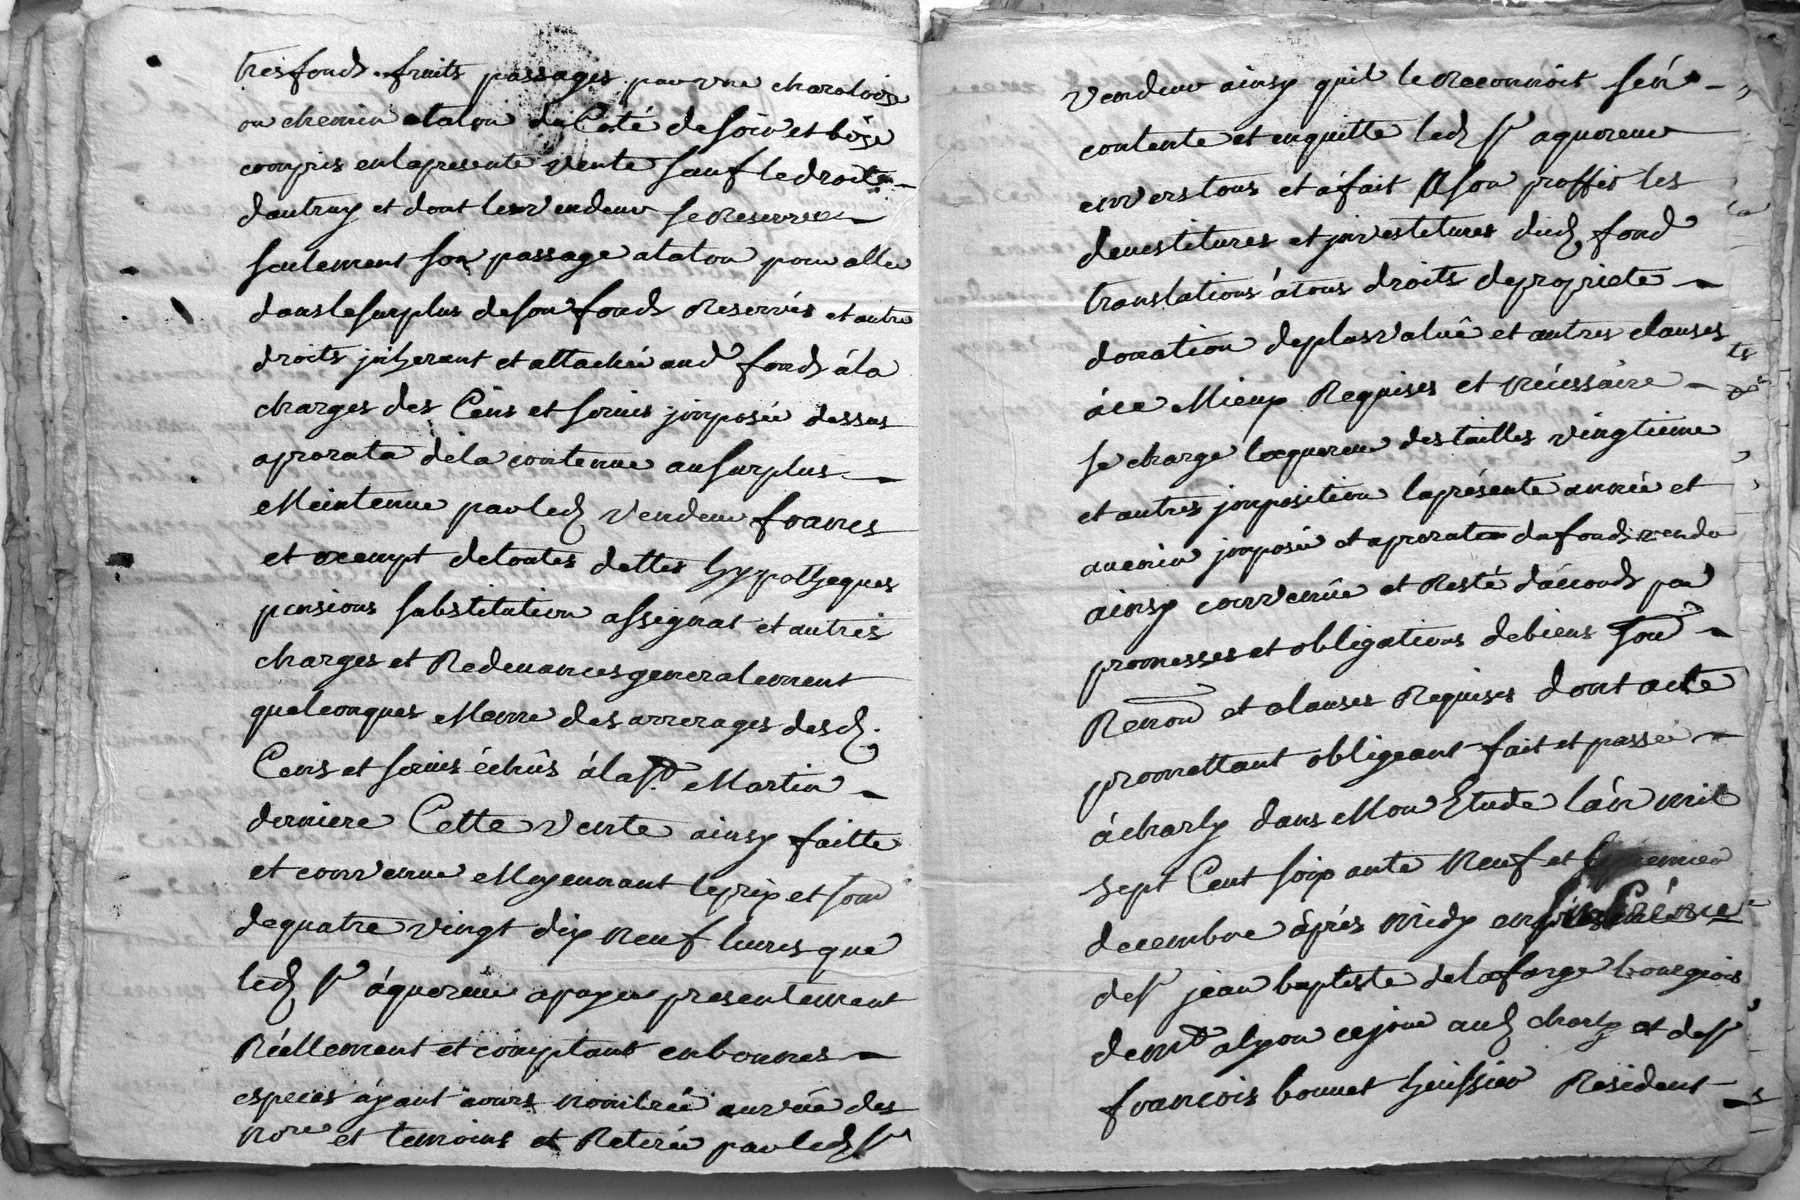 tresfonds fruits passages par une charoloire
ou chemin atalon du Coté de soir et bize
compris en la presente vente sauf le droits
dautruy et dont le vendeur se Reserve
seulement son passage atalon pour aller
dans le surplus de son fonds Reservés et autre
droits jnherant et attachée aud fonds á la
charges des Cens et servis jmposée dessus
aprorata de la contenue au surplus
Meintenue par led vendeur francs
et exempt de toutes dettes hypotheques
pensions substitution assignat et autres
charges et Redevances generalement
quelconques Meme des arrerages desd.
Cens et servis échûs á la st. Martin
derniere Cette vente ainsy faitte
et convenue Moyennant le prix et som
de quatre vingt dix neuf livres que
led sr áquereur a payer presentement
Réellement et comptant en bonnes
especes áyant áours nombrée au veüe des
nore et temoins et Retirée par led sr
vendeur ainsy quil le Reconnoit sén
contente et enquitte led sr aquereur
envers tous et á fait A son proffit les
devestitures et jnvestitures dud fond
translations á tous droits de propriete
donation de plus valuê et autres clauses
á ce Mieux Requises et nécessaire
se charge lacquereur des tailles vingtieme
et autres jmposition la présente année et
avenir jmposée et aprorata du fonds vendu
ainsy convenûe et Resté dáccords par
promesses et obligations de biens soud
Renon et clauses Requises dont acte
promettant obligeant fait et passée
á charly dans Mon Etude lán mil
sept Cent soixante neuf et le premier
decembre áprés midy en presence
de sr jean baptiste delafarge bourgeois
de md a lyon ce jour aud charly et de sr
francois bonnet huissier Resident